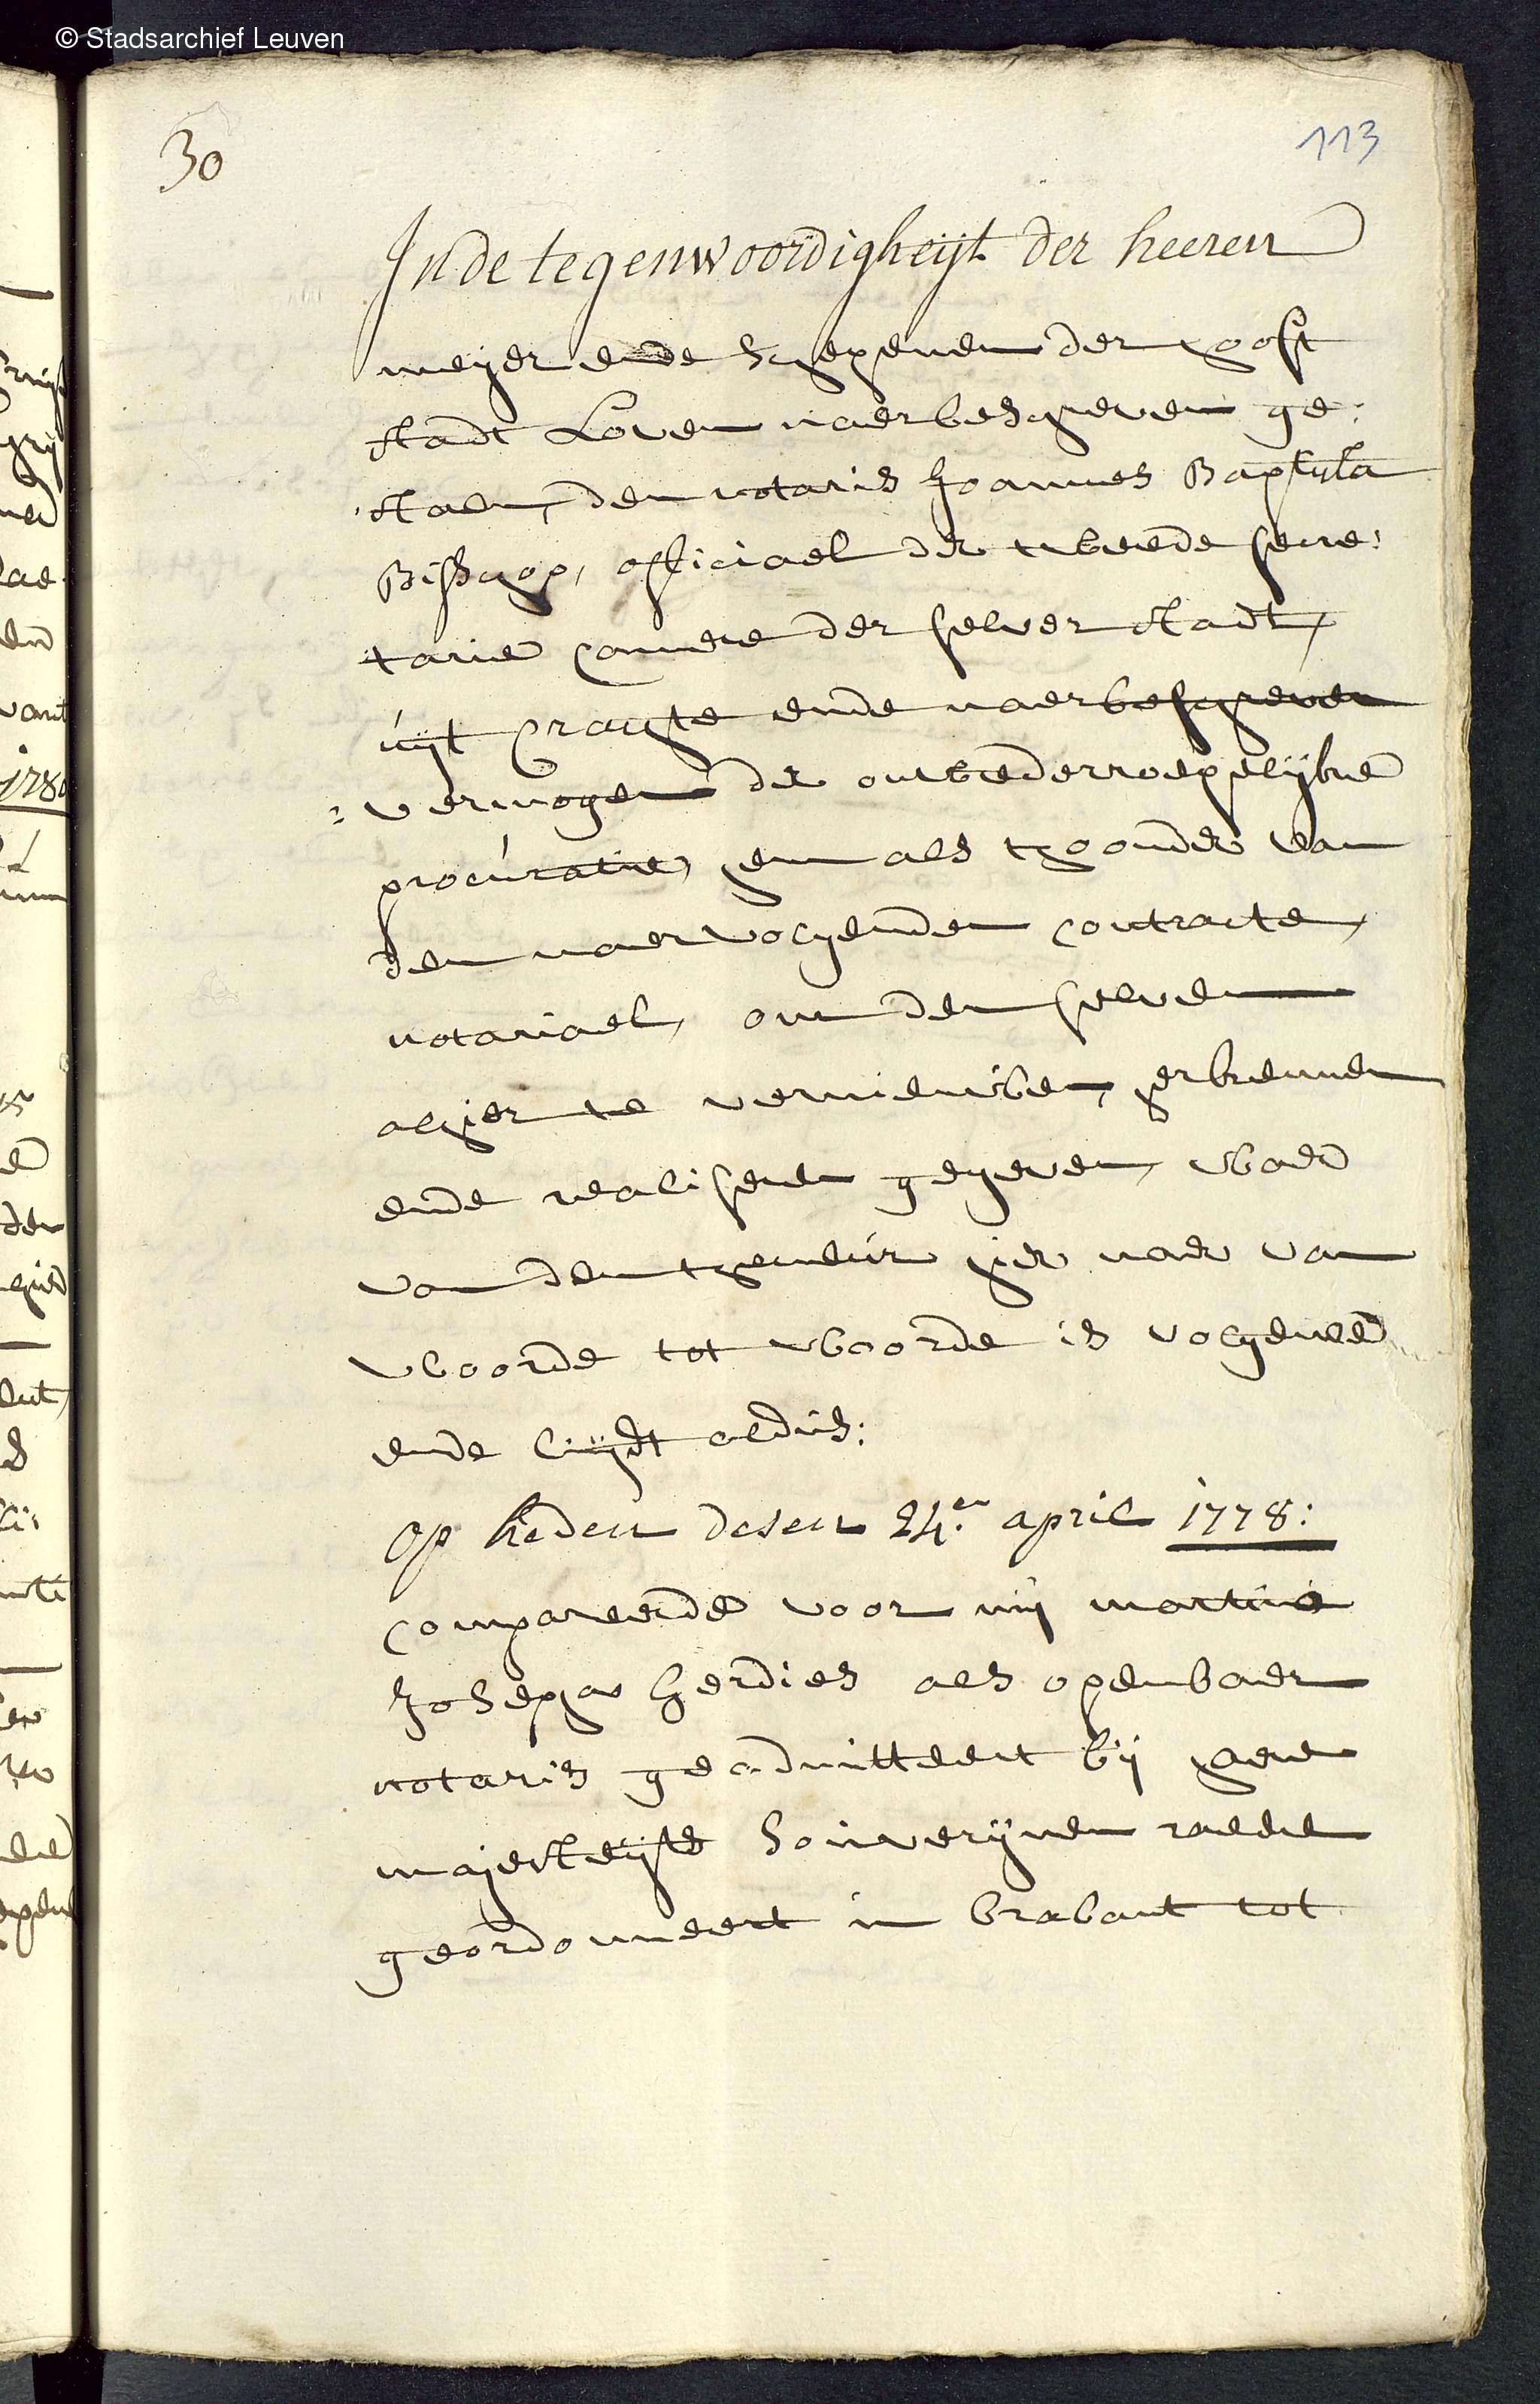 © Stadsarchief Leuven
30
113
In de tegenwoordigheijt der heeren
meijer ende schepenen der hooft
stadt Loven naerbeschreven ge:
staen, den notaris Joannes Baptista
Bisschop, officiael der tweede secre:
tarije camere der selver stadt,
uijt crachte ende naerbeschreven
vermogen der onwederroepelijke
procuratie, hem als thoonder van
den naervolgenden contracte
notariael, om den selven
alhier te vernieuwen, herkennen
ende realiseren gegeven, waer
van den theneur hier naer van
woorde tot woorde is volgende
ende luijdt aldus:
Op heden desen 24.en april 1778:
compareerde voor mij martinus
Josephus Gerdies als openbaer
notaris geadmitteert bij haere
majesteijts souverijnen raede
geordonneert in brabant tot
1780